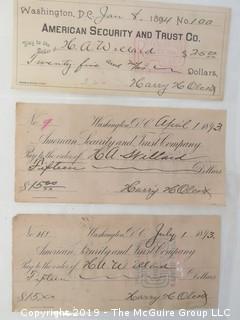 Washington, D.C. Jan 8. 1894 No 100
AMERICAN SECURITY AND TRUST CO.
Pay to the Order of H. A. Willard $25.00
Twenty five and Dollars,
Harry H Olcott
No. 9 Washington, D.C. April 1 1893
American Security and Trust Company,
Pay to the order of H A Willard
Fifteen Dollars
$15.00 Harry H Olcott
No. 181 Washington, D.C. July 1 1893.
American Security and Trust Company,
Pay to the order of H A Willard
Fifteen Dollars
$15.00 Harry H Olcott
Copyright 2019 - The McGuire Group LLC